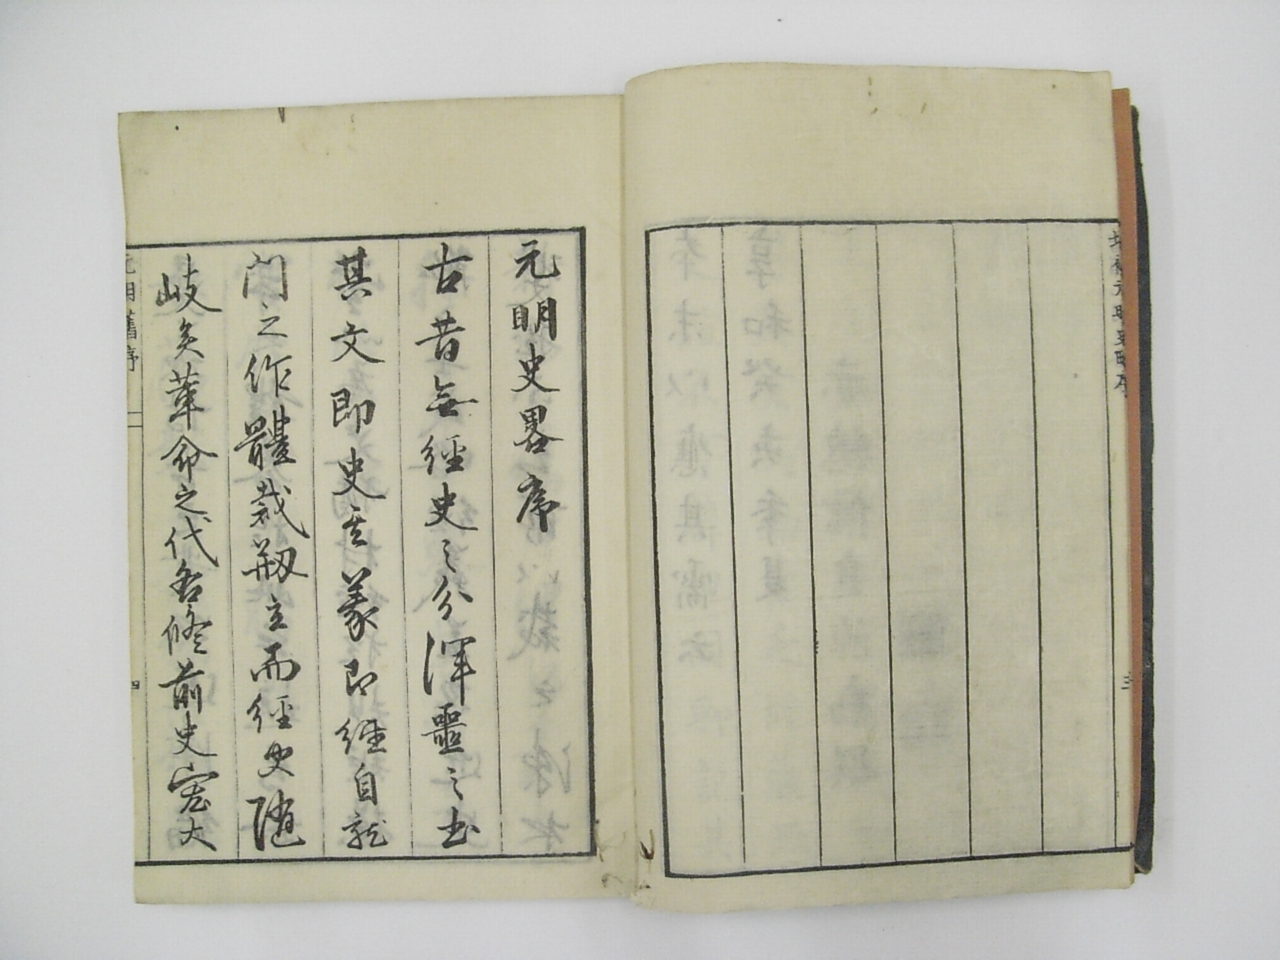 元明史畧序
古昔無經史之分渾噩之書
其文即史其義即經自龍
門之作體裁刱立而經史隨
岐矣革命之代各修前史宏大
元明舊序
四